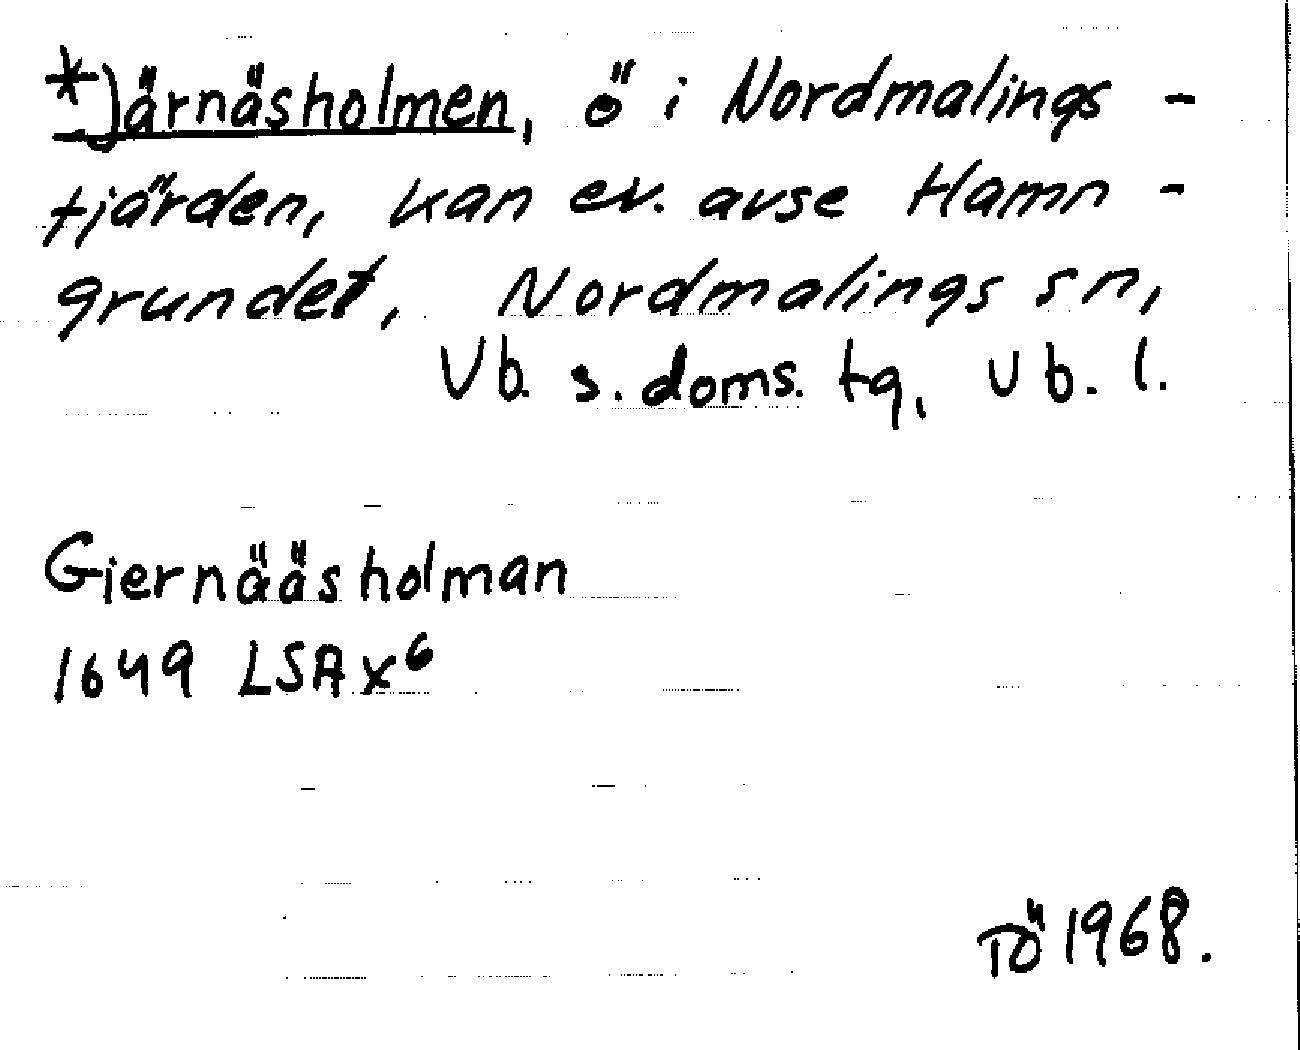 *Järnäsholmen, ö i Nordmalings-
fjärden, kan ev. avse Hamn-
grundet, Nordmalings sn,
Vb. s. doms. tg, Vb. l.
Giernääsholman
1649 LSA X⁶
TÖ 1968.